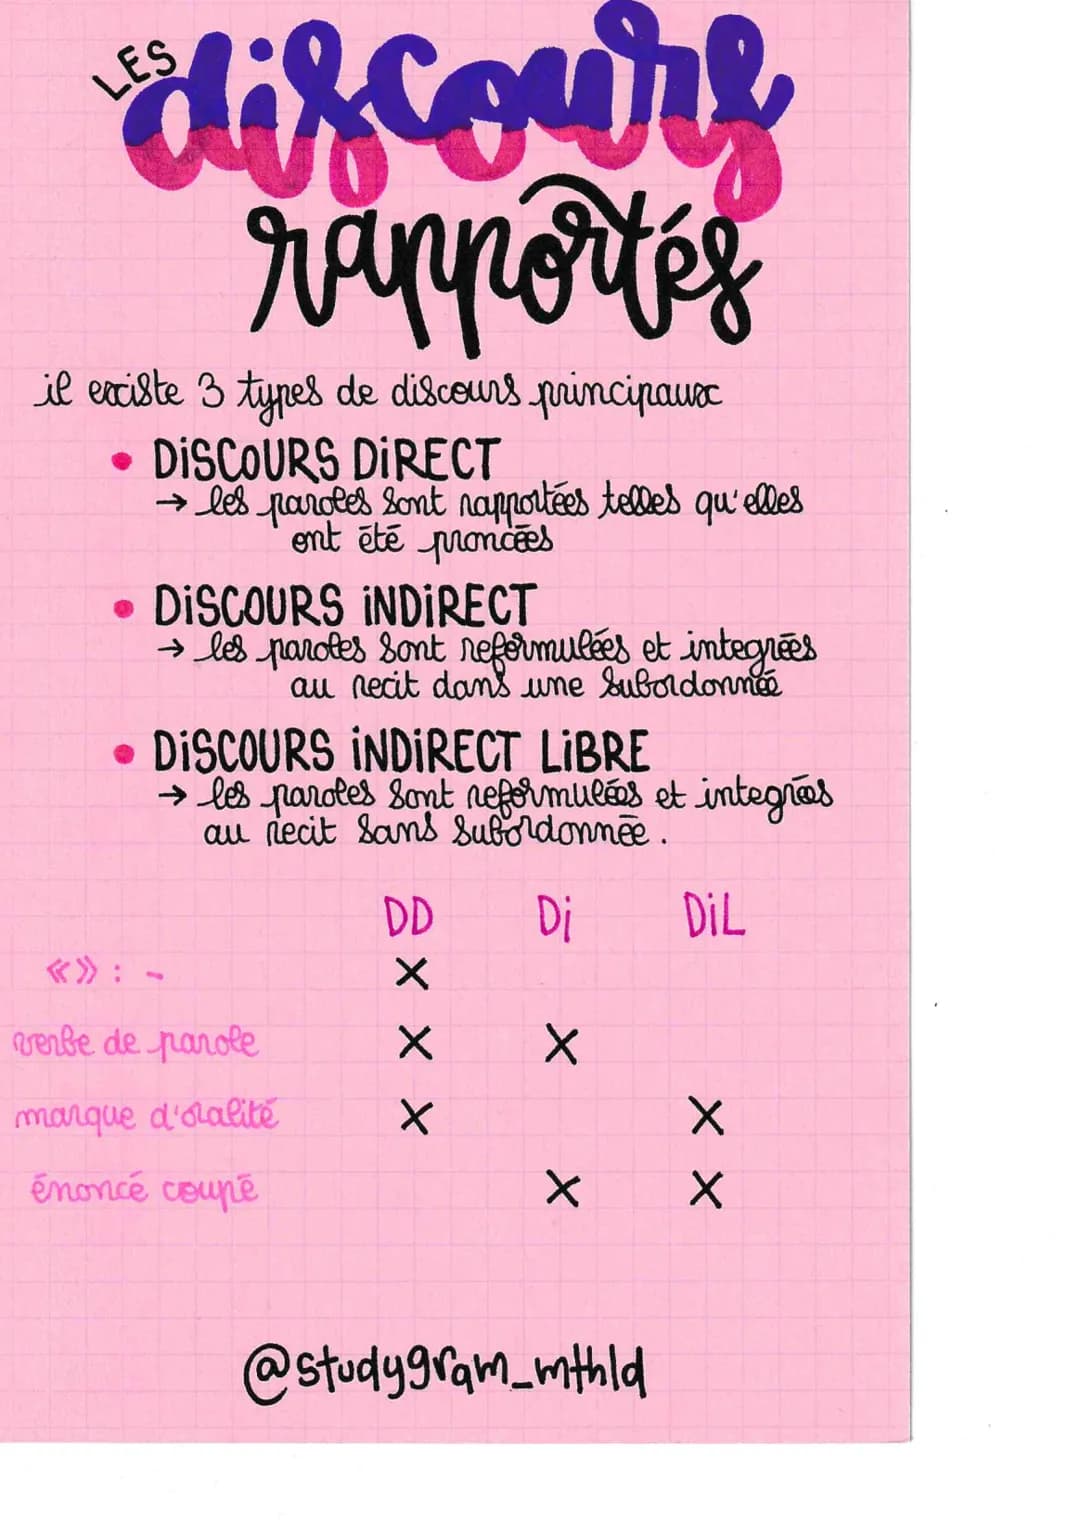 LES
discours
rapportés
il existe 3 types de discours principaux
• DISCOURS DIRECT
→ les paroles sont rapportées telles qu'elles
ont été proncées
• DISCOURS INDIRECT
→ les paroles sont reformulées et integrées
au recit dans une subordonnée
• DISCOURS INDIRECT LIBRE
→ les paroles sont reformulées et integrées
au recit sans subordonnée.
DD Di DiL
«» : - X
verbe de parole X X
marque d'oralité X X
énoncé coupé X X
@studygram_mthld